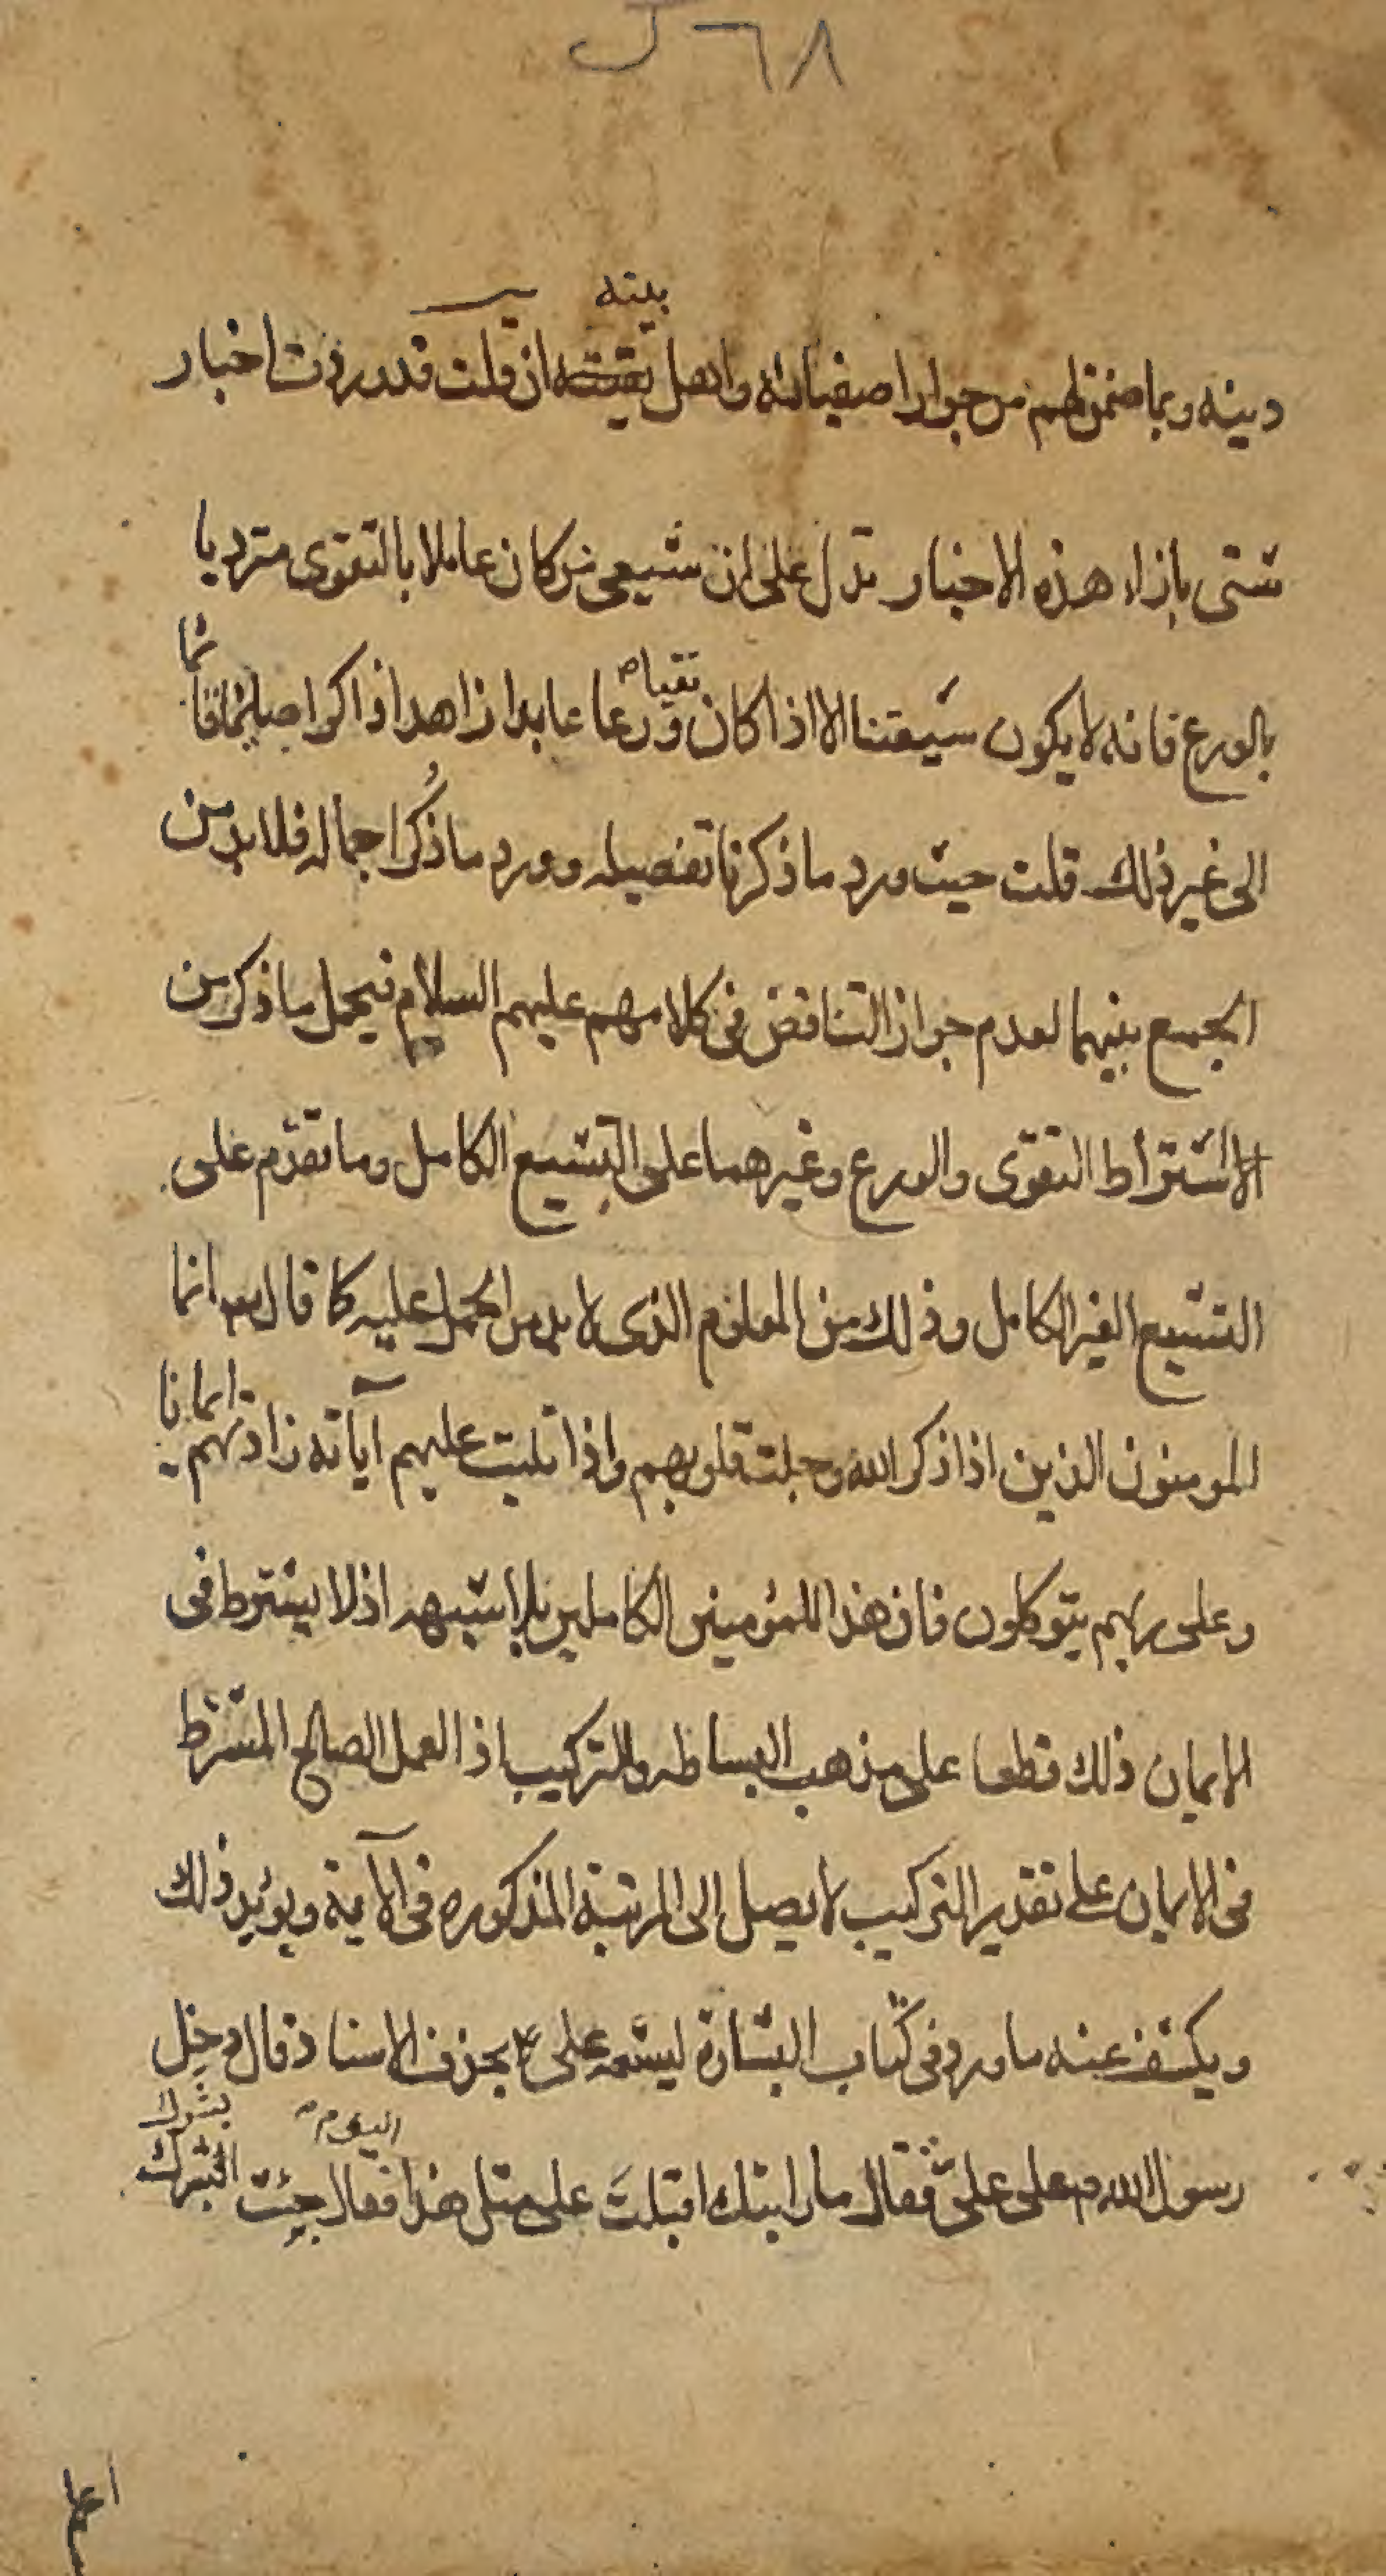 ٦٨ ل
دينه وبما ضمن لهم من جوار اصفيائه واهل بيته ان قلت قد وردت اخبار
شتى بازاء هذه الاخبار تدل على ان شيعى من كان عاملا بالتقوى مترديا
بالورع فانه لا يكون شيعتنا الا اذا كان تقيا ورعا عابدا زاهدا ذاكرا
الى غير ذلك قلت حيث ورد ما ذكرنا تفصيله وورد ما ذُكر اجماله فلا بد من
الجمع بينهما لعدم جواز التناقض فى كلامهم عليهم السلام فيحمل ما ذكر من
الاشتراط التقوى والورع وغيرهما على التشيع الكامل وما تقدم على
التشيع الغير الكامل وذلك من المعلوم الذى لا بد من الحمل عليه كما قال انما
المومنون الذين اذا ذكر الله وجلت قلوبهم واذا تليت عليهم آياته زادتهم ايمانا
وعلى ربهم يتوكلون فان هذا للمؤمنين الكاملين بلا شبهه اذ لا يشترط فى
الايمان ذلك قطعا على مذهب البساطه والتركيب اذ العمل الصالح المشترط
فى الايمان على تقدير التركيب لا يصل الى المرتبة المذكوره فى الآية ويؤيد ذلك
ويكشف عنه ما ورد فى كتاب البشارة لشيعة على ع بحذف الاسناد قال دخل
رسول الله ص على على فقال ما رايتك اقبلت على مثل هذا اليوم فقال جئت ابشرك
اعلم